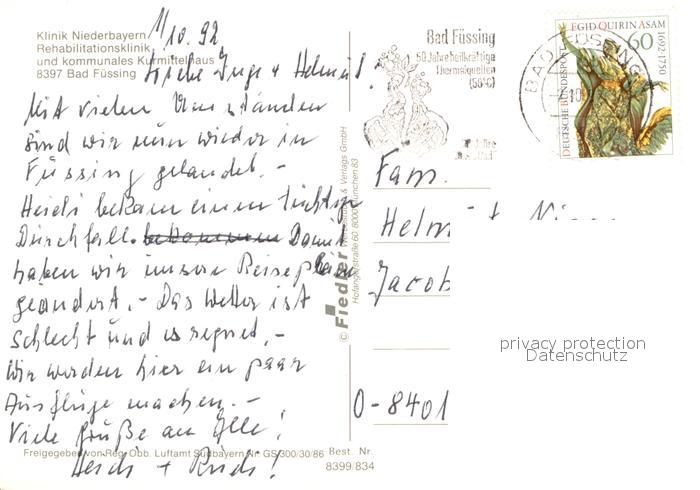 Klinik Niederbayern
Rehabilitationsklinik
und kommunales Kurmittelhaus
8397 Bad Füssing
11/10.92
Liebe Inge + Helmut!
Mit vielen Umständen
sind wir nun wieder in
Füssing gelandet. –
Heidi bekam einen tüchtigen
Durchfall. bekommen Damit
haben wir unsere Reisepläne
geändert. – Das Wetter ist
schlecht und es regnet. –
Wir werden hier ein paar
Ausflüge machen. –
Viele Grüße an Alle!
Heidi + Rudi!
Freigegeben von Reg. Obb. Luftamt Südbayern Nr. GS 300/30/86
Best. Nr.
8399/834
© Fiedler Verlags GmbH
Hofangerstraße 60, 8000 München 83
Bad Füssing
50 Jahre heilkräftige
Thermalquellen
(56°C)
BAD FÜSSING
EGID QUIRIN ASAM
1692-1750
60
DEUTSCHE BUNDESPOST
Fam.
Helmut
Jacob
O-8401
privacy protection
Datenschutz